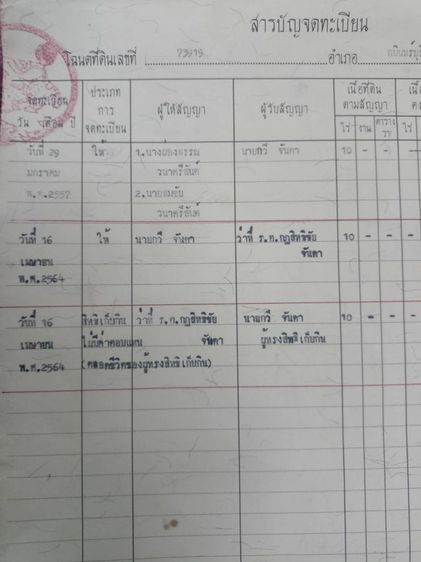 สารบัญจดทะเบียน
โฉนดที่ดินเลขที่ 73919 อำเภอ กบินทร์บุรี
จดทะเบียน
วัน เดือน ปี
ประเภท
การ
จดทะเบียน
ผู้ให้สัญญา
ผู้รับสัญญา
เนื้อที่ดิน
ตามสัญญา
ไร่ งาน ตาราง
วา
ไร่
วันที่ 29 ให้ 1.นาง นายกวี จันดา 10 - -
มกราคม
พ.ศ.2557 2.นายสมชัย
วันที่ 16 ให้ นายกวี จันดา ว่าที่ ร.ต.กฎสิทธิชัย 10 - -
เมษายน จันดา
พ.ศ.2564
วันที่ 16 สิทธิเก็บกิน ว่าที่ ร.ต.กฎสิทธิชัย นายกวี จันดา 10 - -
เมษายน ไม่มีค่าตอบแทน จันดา ผู้ทรงสิทธิเก็บกิน
พ.ศ.2564 (ตลอดชีวิตของผู้ทรงสิทธิเก็บกิน)